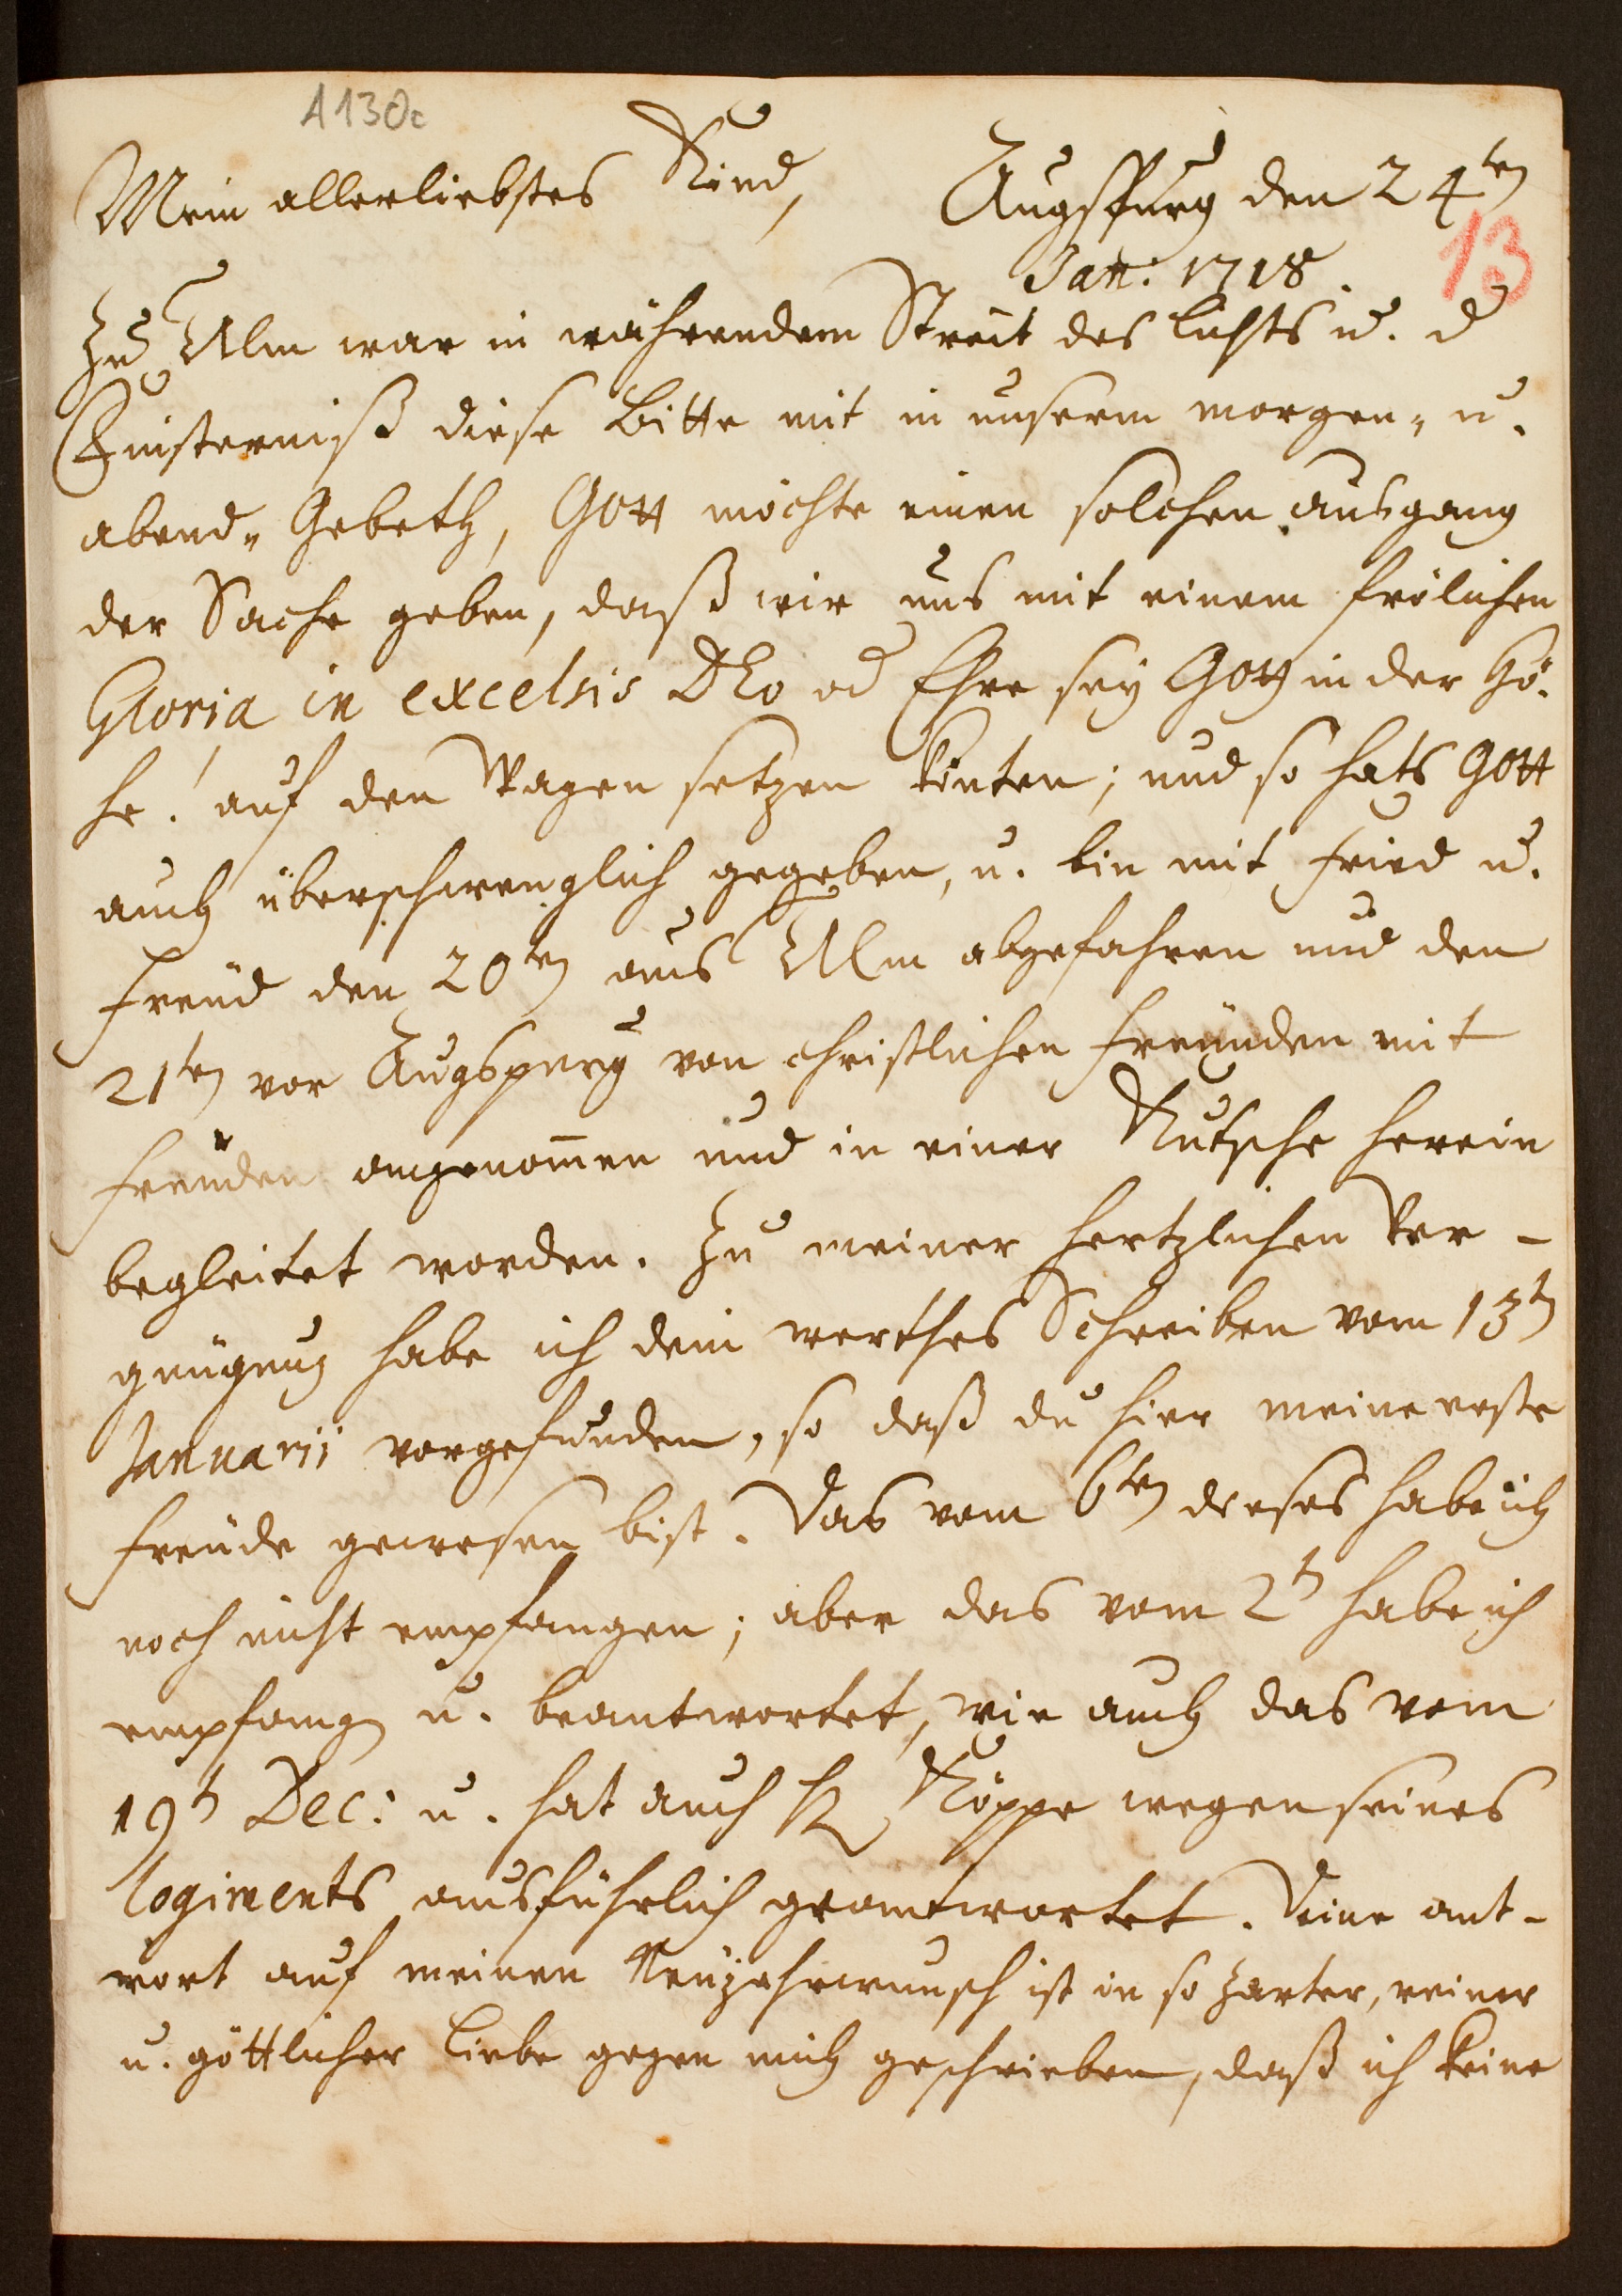 A 130c
Mein allerliebstes Kind, Augspurg den 24ten
13
Jan: 1718.
Zu Ulm war in währendem Streit des lichts u. d
Finsterniß diese Bitte mit in unserm morgen- u.
abend- Gebeth, Gott möchte einen solchen ausgang
der Sache geben, daß wir uns mit einem frölichen
Gloria in excelsis DEo od Ehre sey Gott in der Hö-
he! auf den Wagen setzen könten; und so hats Gott
auch überschwenglich gegeben, u. bin mit fried u.
freud den 20ten aus Ulm abgefahren und den
21ten vor Augspurg von christlichen freunden mit
freuden angenom̄en und in einer Kutsche herein
begleitet worden. Zu meiner hertzlichen Ver-
gnügung habe ich dein werthes Schreiben vom 13t
Januarii vorgefunden, so daß du hier meine erste
freude gewesen bist. Das vom 6ten dieses habe ich
noch nicht empfangen; aber das vom 2t habe ich
empfang u. beantwortet, wie auch das vom
19t Dec: u. hat auch H Köppe wegen seines
logiments ausführlich geantwortet. Deine ant-
wort auf meinen Neujahrwunsch ist in so zarter, reiner
u. göttlicher Liebe gegen mich geschrieben, daß ich keine